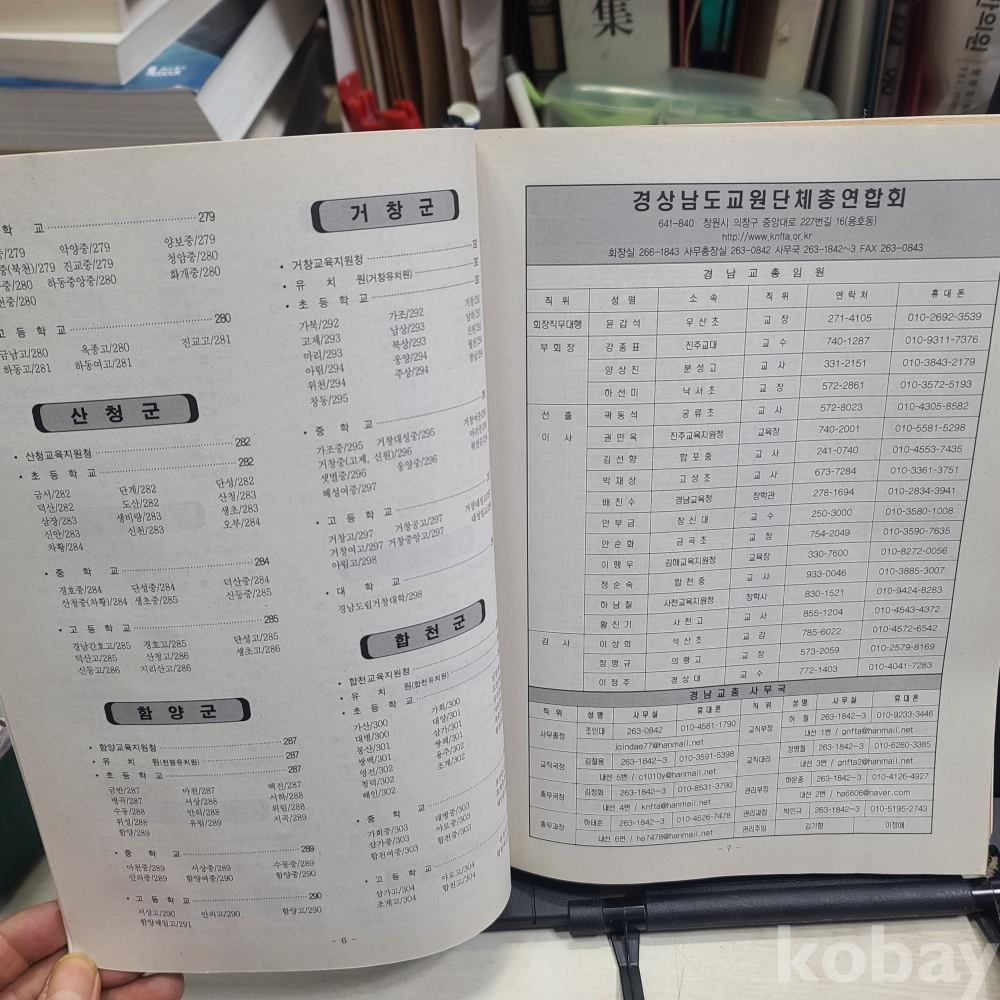 集
학 교 279
악양중/279 양보중/279
진교중/279 청암중/280
하동중앙중/280 화개중/280
고 등 학 교 280
금남고/280 옥종고/280 진교고/281
하동고/281 하동여고/281
산 청 군
• 산청교육지원청 282
• 초 등 학 교 282
금서/282 단계/282 단성/282
덕산/282 도산/282 산청/283
삼장/283 생비량/283 생초/283
신안/283 신천/283 오부/284
차황/284
• 중 학 교 284
경호중/284 단성중/284 덕산중/284
산청중(차황)/284 생초중/285 신등중/285
• 고 등 학 교 285
경남간호고/285 경호고/285 단성고/285
덕산고/285 산청고/286 생초고/286
신등고/286 지리산고/286
함 양 군
• 함양교육지원청 287
• 유 치 원(천령유치원) 287
• 초 등 학 교 287
금반/287 마천/287 백전/287
병곡/287 서상/288 서하/288
수동/288 안의/288 위림/288
위성/288 유림/289 지곡/289
함양/289
• 중 학 교 289
마천중/289 서상중/289 수동중/289
안의중/289 함양여중/290 함양중/290
• 고 등 학 교 290
서상고/290 안의고/290 함양고/290
함양제일고/291
- 6 -
거 창 군
• 거창교육지원청
• 유 치 원(거창유치원)
• 초 등 학 교
가북/292 가조/292
고제/293 남상/293
마리/293 북상/293
아림/294 웅양/294
위천/294 주상/294
창동/295
• 중 학 교
가조중/295 거창대성중/295
거창중(고제, 신원)/296
샛별중/296 웅양중/296
혜성여중/297
• 고 등 학 교
거창고/297 거창공고/297
거창여고/297 거창중앙고/297
아림고/298
• 대 학 교
경남도립거창대학/298
합 천 군
• 합천교육지원청
• 유 치 원(합천유치원)
• 초 등 학 교
가산/300 가회/300
대병/300 대양/301
봉산/301 삼가/301
쌍백/301 쌍책/301
영전/302 용주/302
청덕/302 초계/302
해인/302
• 중 학 교
가회중/303 대병중/303
삼가중/303 야로중/303
합천여중/303 합천중/303
• 고 등 학 교
삼가고/304 야로고/304
초계고/304 합천고/304
경상남도교원단체총연합회
641-840 창원시 의창구 중앙대로 227번길 16(용호동)
http://www.knfta.or.kr
회장실 266-1843 사무총장실 263-0842 사무국 263-1842~3 FAX 263-0843
경 남 교 총 임 원
직 위 성 명 소 속 직 위 연 락 처 휴 대 폰
회장직무대행 윤 갑 석 우 산 초 교 장 271-4105 010-2692-3539
부 회 장 강 종 표 진주교대 교 수 740-1287 010-9311-7376
양 상 진 분 성 고 교 사 331-2151 010-3843-2179
하 선 미 낙 서 초 교 장 572-2861 010-3572-5193
선 출 곽 동 석 궁 류 초 교 사 572-8023 010-4305-8582
이 사 권 만 옥 진주교육지원청 교육장 740-2001 010-5581-5298
김 선 향 합 포 중 교 사 241-0740 010-4553-7435
박 재 상 고 성 초 교 사 673-7284 010-3361-3751
배 진 수 경남교육청 장학관 278-1694 010-2834-3941
안 부 금 창 신 대 교 수 250-3000 010-3580-1008
안 순 화 금 곡 초 교 장 754-2049 010-3590-7635
이 맹 우 김해교육지원청 교육장 330-7600 010-8272-0056
정 순 숙 합 천 중 교 사 933-0046 010-3885-3007
하 남 칠 사천교육지원청 장학사 830-1521 010-9424-8283
황 진 기 사 천 고 교 사 855-1204 010-4543-4372
감 사 이 상 희 석 산 초 교 감 785-6022 010-4572-6542
정 명 규 의 령 고 교 장 573-2059 010-2579-8169
이 정 주 경 상 대 교 수 772-1403 010-4041-7283
경 남 교 총 사 무 국
직 위 성 명 사 무 실 휴 대 폰 직 위 성 명 사 무 실 휴 대 폰
사무총장 조인대 263-0842 010-4581-1790 교직부장 허 철 263-1842~3 010-9233-3446
joindae77@hanmail.net 내선 1번 / gnfta@hanmail.net
교직국장 김철용 263-1842~3 010-3591-5398 교직대리 정병철 263-1842~3 010-6260-3385
내선 5번 / c1010y@hanmail.net 내선 3번 / gnfta2@hanmail.net
총무국장 김정화 263-1842~3 010-8531-3790 관리부장 하운종 263-1842~3 010-4126-4927
내선 4번 / knfta@hanmail.net 내선 2번 / ha6606@naver.com
총무과장 하태준 263-1842~3 010-4526-7478 관리과장 박인규 263-1842~3 010-5195-2743
내선 6번 / ha7478@hanmail.net 관리주임 김기향 이정애
- 7 -
kobay